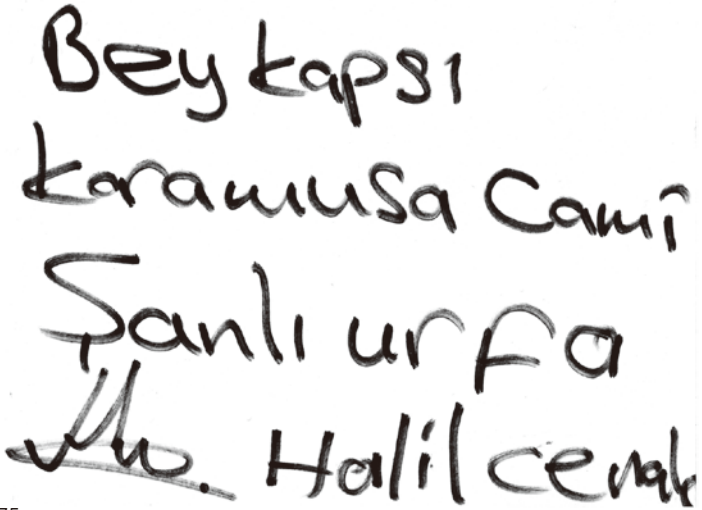 Beykapsı
Karamusa Camî
Şanlı urfa
Halil